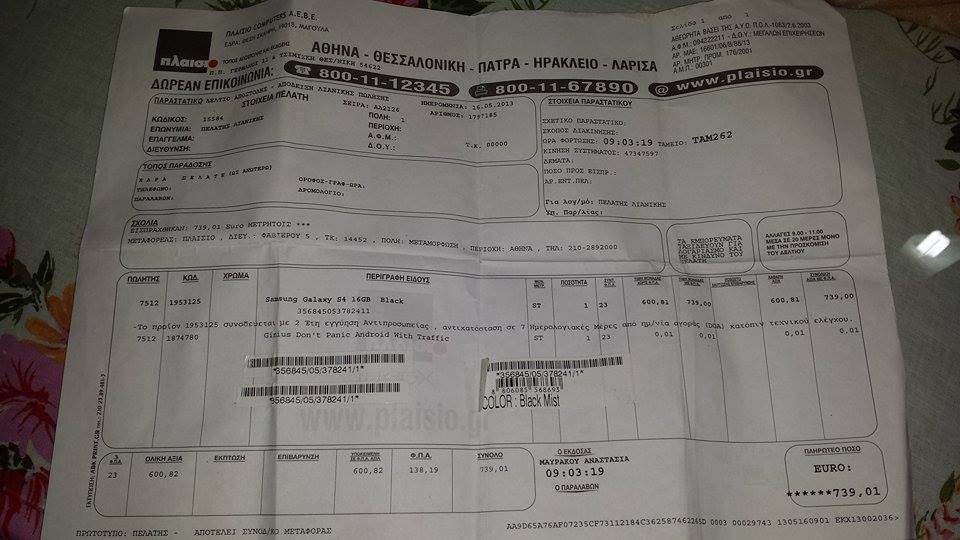 ΠΛΑΙΣΙΟ COMPUTERS Α.Ε.Β.Ε.
ΕΔΡΑ: ΘΕΣΗ ΣΚΛΗΡΗ, 19018, ΜΑΓΟΥΛΑ
πλαίσιο
ΤΟΠΟΣ ΑΠΟΣΤΟΛΗΣ ΚΑΙ ΕΚΔΟΣΗΣ
Π.Π. ΓΕΡΜΑΝΟΥ 11 & ΤΣΙΜΙΣΚΗ ΘΕΣ/ΝΙΚΗ 54622
Σελίδα 1 από 1
ΑΘΕΩΡΗΤΑ ΒΑΣΕΙ ΤΗΣ Α.Υ.Ο. ΠΟΛ.-1083/2.6.2003
Α.Φ.Μ.: 094222211 - Δ.Ο.Υ.: ΜΕΓΑΛΩΝ ΕΠΙΧΕΙΡΗΣΕΩΝ
ΑΡ. ΜΑΕ: 16601/06/Β/88/13
ΑΡ. ΜΗΤΡ. ΠΡΟΜ.: 176/2001
Α.Μ.Π.: 00301
ΑΘΗΝΑ - ΘΕΣΣΑΛΟΝΙΚΗ - ΠΑΤΡΑ - ΗΡΑΚΛΕΙΟ - ΛΑΡΙΣΑ
ΔΩΡΕΑΝ ΕΠΙΚΟΙΝΩΝΙΑ: 800-11-12345 800-11-67890 @ www.plaisio.gr
ΠΑΡΑΣΤΑΤΙΚΟ ΔΕΛΤΙΟ ΑΠΟΣΤΟΛΗΣ - ΑΠΟΔΕΙΞΗ ΛΙΑΝΙΚΗΣ ΠΩΛΗΣΗΣ
ΣΤΟΙΧΕΙΑ ΠΕΛΑΤΗ
ΣΕΙΡΑ: ΑΛ2126 ΗΜΕΡΟΜΗΝΙΑ: 16.05.2013
ΚΩΔΙΚΟΣ: 15584 ΠΟΛΗ: 1 ΑΡΙΘΜΟΣ: 1797185
ΕΠΩΝΥΜΙΑ: ΠΕΛΑΤΗΣ ΛΙΑΝΙΚΗΣ ΠΕΡΙΟΧΗ:
ΕΠΑΓΓΕΛΜΑ: Α.Φ.Μ.:
ΔΙΕΥΘΥΝΣΗ: Δ.Ο.Υ.: Τ.Κ. 00000
ΣΤΟΙΧΕΙΑ ΠΑΡΑΣΤΑΤΙΚΟΥ
ΣΧΕΤΙΚΟ ΠΑΡΑΣΤΑΤΙΚΟ:
ΣΚΟΠΟΣ ΔΙΑΚΙΝΗΣΗΣ:
ΩΡΑ ΦΟΡΤΩΣΗΣ: 09:03:19 ΤΑΜΕΙΟ: ΤΑΜ262
ΚΙΝΗΣΗ ΣΥΣΤΗΜΑΤΟΣ: 47347597
ΔΕΜΑΤΑ:
ΠΟΣΟ ΠΡΟΣ ΕΙΣΠΡ.:
ΑΡ.ΕΝΤ.ΠΕΛ.:
Για λογ/μό: ΠΕΛΑΤΗΣ ΛΙΑΝΙΚΗΣ
Υπ. Παρ/λίας:
ΤΟΠΟΣ ΠΑΡΑΔΟΣΗΣ
ΕΔΡΑ ΠΕΛΑΤΕ (ΩΣ ΑΝΩΤΕΡΩ) ΟΡΟΦΟΣ-ΓΡΑΦ-ΩΡΑ:
ΤΗΛΕΦΩΝΟ: ΔΡΟΜΟΛΟΓΙΟ:
ΠΑΡΑΛΑΒΩΝ:
ΣΧΟΛΙΑ
ΕΙΣΠΡΑΧΘΗΚΑΝ: 739,01 Euro ΜΕΤΡΗΤΟΙΣ ***
ΜΕΤΑΦΟΡΕΑΣ: ΠΛΑΙΣΙΟ , ΔΙΕΥ.: ΦΑΒΙΕΡΟΥ 5 , ΤΚ: 14452 , ΠΟΛΗ: ΜΕΤΑΜΟΡΦΩΣΗ , ΠΕΡΙΟΧΗ: ΑΘΗΝΑ , ΤΗΛ: 210-2892000
ΤΑ ΕΜΠΟΡΕΥΜΑΤΑ
ΤΑΞΙΔΕΥΟΥΝ ΓΙΑ
ΛΟΓΑΡΙΑΣΜΟ ΚΑΙ
ΜΕ ΚΙΝΔΥΝΟ ΤΟΥ
ΠΕΛΑΤΗ
ΑΛΛΑΓΕΣ 9.00 - 11.00
ΜΕΣΑ ΣΕ 20 ΜΕΡΕΣ ΜΟΝΟ
ΜΕ ΤΗΝ ΠΡΟΣΚΟΜΙΣΗ
ΤΟΥ ΔΕΛΤΙΟΥ
ΠΩΛΗΤΗΣ ΚΩΔ. ΧΡΩΜΑ ΠΕΡΙΓΡΑΦΗ ΕΙΔΟΥΣ ΠΟΣΟΤΗΤΑ
7512 1953125 Samsung Galaxy S4 16GB Black ST 1 23 600,81 739,00 600,81 739,00
356845053782411
-Το προϊον 1953125 συνοδεύεται με 2 Έτη εγγύηση Αντιπροσωπείας , αντικατάσταση σε 7 Ημερολογιακές Μερες από ημ/νία αγοράς (DOA) κατόπιν τεχνικού ελέγχου.
7512 1874780 Girlus Don't Panic Android With Traffic ST 1 23 0,01 0,01 0,01 0,01
*356845/05/378241/1*
*356845/05/378241/1*
*356845/05/378241/1*
8 806085 568693
COLOR : Black Mist
www.plaisio.gr
ΕΚΤΥΠΩΣΗ: ABK PRINT.GR
Φ.Π.Α. ΟΛΙΚΗ ΑΞΙΑ ΕΚΠΤΩΣΗ ΕΠΙΒΑΡΥΝΣΗ ΥΠΟΚΕΙΜΕΝΗ ΣΕ Φ.Π.Α. ΑΞΙΑ Φ.Π.Α. ΣΥΝΟΛΟ
23 600,82 600,82 138,19 739,01
Ο ΕΚΔΟΣΑΣ
ΜΑΥΡΑΚΟΥ ΑΝΑΣΤΑΣΙΑ
09:03:19
Ο ΠΑΡΑΛΑΒΩΝ
ΠΛΗΡΩΤΕΟ ΠΟΣΟ
EURO:
******739,01
AA9D65A76AF07235CF73112184C362587462265D 0003 00029743 1305160901 EKX13002036>
ΠΡΩΤΟΤΥΠΟ: ΠΕΛΑΤΗΣ - ΑΠΟΤΕΛΕΙ ΣΥΝΟΔ/ΚΟ ΜΕΤΑΦΟΡΑΣ